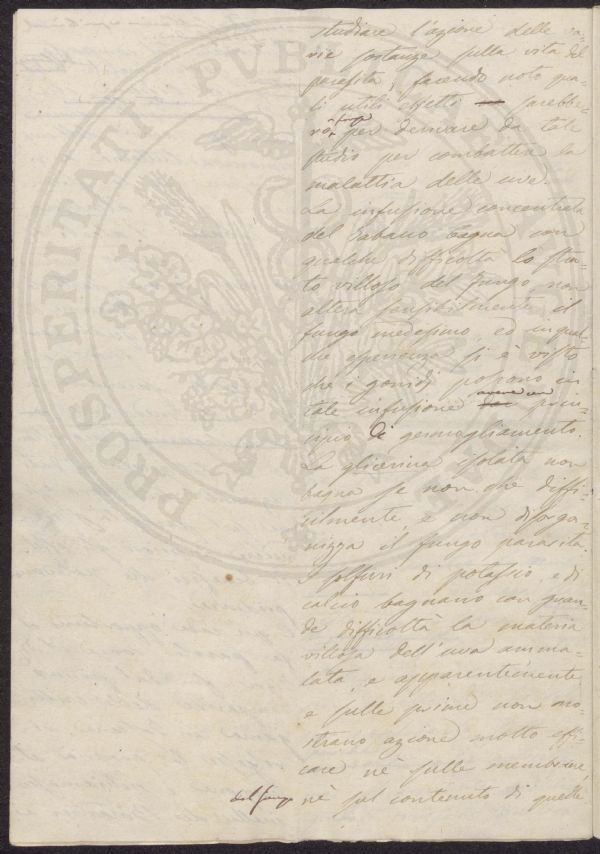 studiare l'azione delle va-
rie sostanze sulla vita del
parassita, facendo noto qua-
li utili effetti sarebbe-
ro per derivare da tale
studio per combattere la
malattia delle uve.
La infusione concentrata
del Tabacco bagna con
qualche difficoltà lo stra-
to villoso del fungo, non
altera sensibilmente il
fungo medesimo, ed in qual-
che esperienza si è visto
che i gonidj possono in
tale infusione avere un prin-
cipio di germogliamento.
La glicerina isolata non
bagna se non che diffi-
cilmente, e non disorga-
nizza il fungo parassita.
I solfuri di potassio, e di
calcio bagnano con gran-
de difficoltà la materia
villosa dell'uva amma-
lata, e apparentemente
e sulle prime non mo-
strano azione molto effi-
cace nè sulle membrane,
nè sul contenuto di quelle
del fungo
PROSPERITATI PUBLICAE